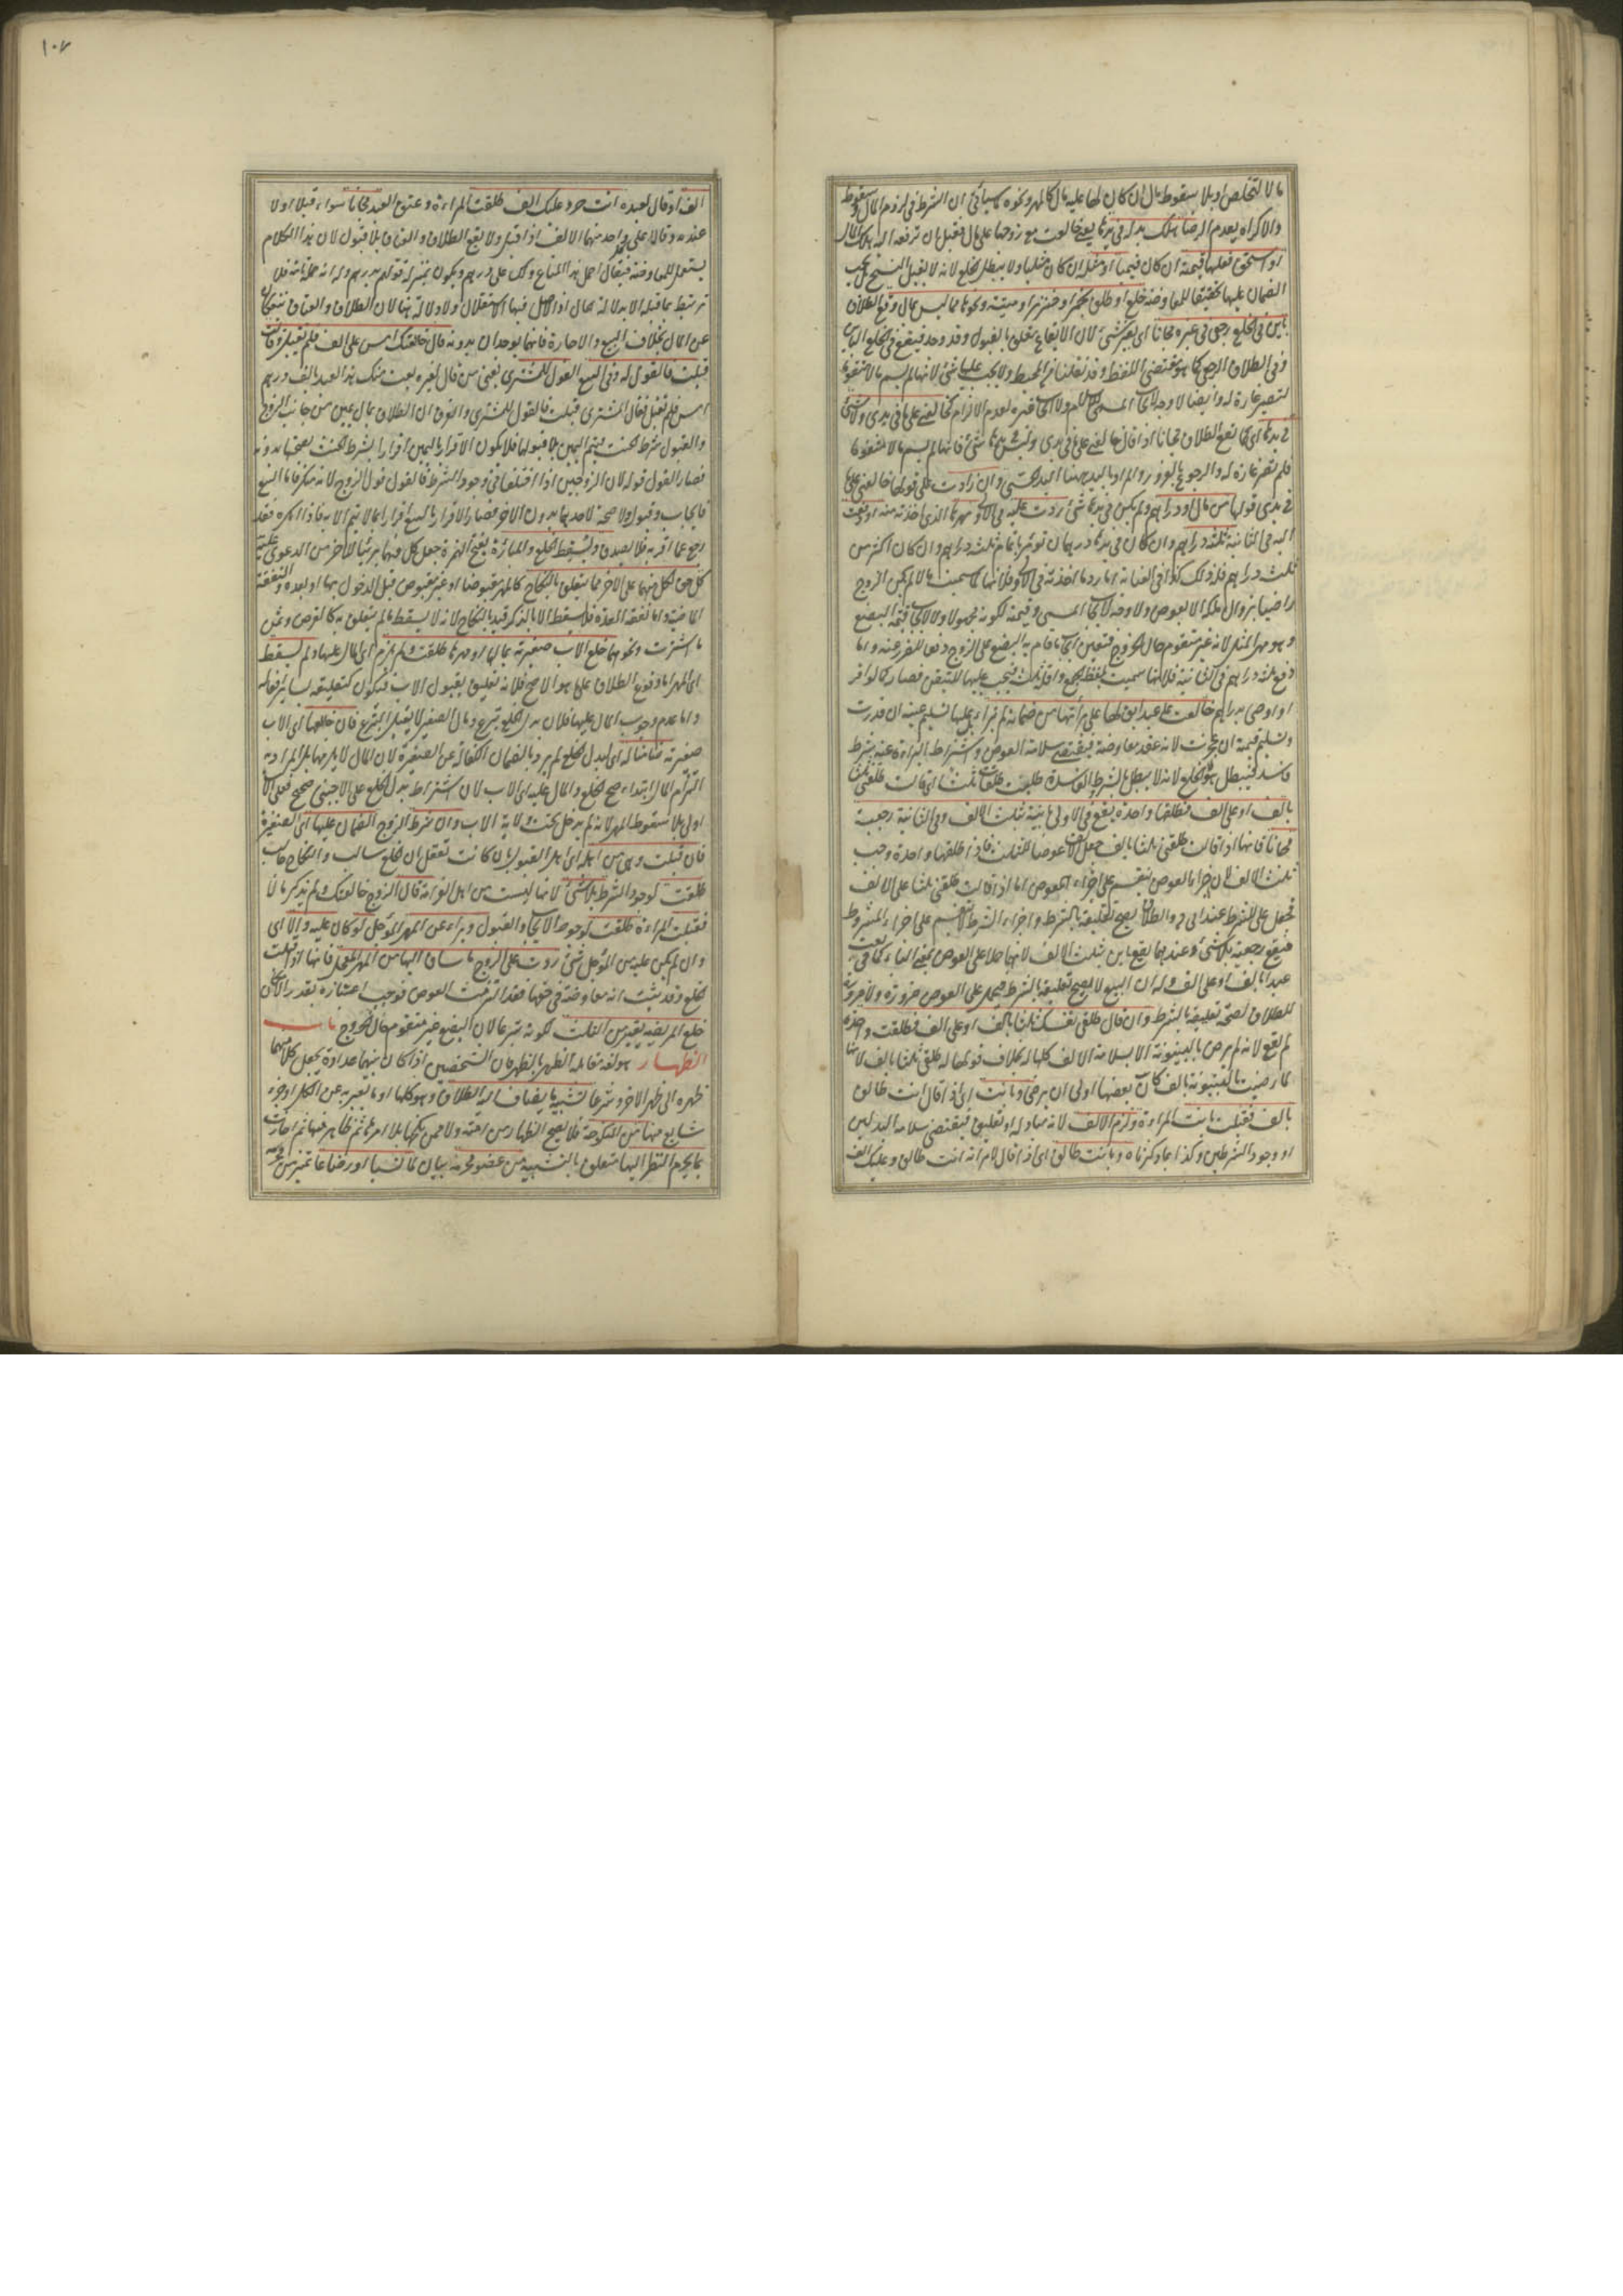 مالا لتخلص او بلا سقوط مال ان كان لها عليه مال كالمهر ونحوه كما سيأتى ان الشرط فى لزوم المال وسقوطه
والاكراه يعدم الرضا هلك بدله فى يدها يعنى خالعت مع زوجها على مال فقبل ان ترفعه اليه هلك المال
او استحق فعليها قيمته ان كان قيميا او مثله ان كان مثليا ولا يبطل الخلع لانه لا يقبل الفسخ بل يجب
الضمان عليها تحقيقا للمعاوضة خلع او طلق بخمر او خنزير او ميتة ونحوها مما ليس بمال وقع الطلاق
باين فى الخلع رجعى فى غيره مجانا اى بغير شئ لان الايقاع معلق بالقبول وقد وجد فيقع فى الخلع الباين
وفى الطلاق الرجعى كما هو مقتضى اللفظ وقد نقلنا من المحيط ولا يجب عليها شئ لانها لم تسم مالا متقوما
لتصير غارة له وايضا لا وجه لايجاب المسمى للاسلام ولا ايجاب غيره لعدم الالتزام كخالعنى على ما فى يدى ولا شئ
فى يدها اى كما يقع الطلاق مجانا اذا قال خالعنى على ما فى يدى وليس فى يدها شئ فانها لم تسم مالا متقوما
فلم تصر غارة له والرجوع بالغرور والمراد باليد ههنا اليد الحسى وان زادت على قولها خالعنى على ما
فى يدى قولها من مال او دراهم ولم يكن فى يدها شئ ردت عليه فى الاول مهرها الذى اخذته منه او دفعت
اليه فى الثانية ثلثة دراهم وان كان فى يدها درهمان تؤمر باتمام ثلثة دراهم وان كان اكثر من
ثلث دراهم فله ذلك كذا فى العناية اما رد ما اخذته فى الاول فلانها لما سمت مالا لم يكن الزوج
راضيا بزوال ملكه الا بعوض ولا وجه لايجاب المسمى وقيمته لكونه مجهولا ولا لايجاب قيمة البضع
وهو مهر المثل لانه غير متقوم حال الخروج فتعين ايجاب ما قام به البضع على الزوج دفعا للضرر عنه واما
دفع ثلثة دراهم فى الثانية فلانها سميت بلفظ الجمع واقله ثلث فيجب عليها للتيقن فصار كما لو اقر
او اوصى بدراهم خالعت على عبد آبق لها على براءتها من ضمانه لم تبرأ بل عليها تسليم عينه ان قدرت
وتسليم قيمته ان عجزت لانه عقد معاوضة فيقتضى سلامة العوض واشتراط البراءة عنه شرط
فاسد فيبطل هو لا الخلع لانه لا يبطل بالشروط الفاسدة طلبت طلقات ثلثا اى قالت طلقنى ثلثا
بالف او على الف فطلقها واحدة يقع فى الاولى باينة بثلث الالف وفى الثانية رجعية
مجانا فانها اذا قالت طلقنى ثلثا بالف جعل الالف عوضا للثلث فاذا طلقها واحدة وجب
ثلث الالف لان اجزاء العوض تنقسم على اجزاء المعوض اما اذا قالت طلقنى ثلثا على الالف
فجعل على للشرط عند ابى ح والطلاق يصح تعليقه بالشرط واجزاء الشرط لا تنقسم على اجزاء المشروط
فيقع رجعية بلا شئ وعندهما يقع باين بثلث الالف لانها حملا على العوض بمعنى الباء كما فى بعت
عبدا بالف او على الف وله ان البيع لا يصح تعليقه بالشرط فيحمل على العوض ضرورة ولا ضرورة فى
الطلاق لصحة تعليقه بالشرط وان قال طلقى نفسك ثلثا بالف او على الف فطلقت واحدة
لم يقع لانه لم يرض بالبينونة الا بسلامة الالف كلها له بخلاف قولها له طلقنى ثلثا بالف لانها
لما رضيت بالبينونة بالف كان ببعضها اولى ان ترضى وبانت اى اذا قال انت طالق
بالف فقبلت بانت المرأة ولزم الالف لانه مبادلة او تعليق فيقتضى سلامة البدلين
او وجود الشرطين وكذا بما ذكرناه وبانت طالق اى اذا قال لامرأته انت طالق وعليك الف
الف او قال لعبده انت حر وعليك الف طلقت المرأة وعتق العبد مجانا سواء قبلا او لا
عنده وقالا على كل واحد منهما الالف اذا قبل ولا يقع الطلاق والعتاق بلا قبول لان هذا الكلام
يستعمل للمعاوضة فيقال احمل هذا المتاع ولك على درهم ويكون بمنزلة قولهم بدرهم وله انه جملة تامة فلا
ترتبط بما قبله الا بدلالة الحال اذ الاصل فيها الاستقلال ولا دلالة هنا لان الطلاق والعتاق ينفكان
عن المال بخلاف البيع والاجارة فانهما لا يوجدان بدونه قال خالعتك امس على الف فلم تقبلى وقالت
قبلت فالقول له وفى البيع القول للمشترى يعنى من قال لغيره بعت منك هذا العبد بالف درهم
امس فلم تقبل فقال المشترى قبلت فالقول للمشترى والفرق ان الطلاق بمال يمين من جانب الزوج
والقبول شرط الحنث فيتم اليمين بلا قبولها فلا يكون الاقرار باليمين اقرارا بشرط الحنث لصحتها بدونه
فصار القول قوله لان الزوجين اذا اختلفا فى وجود الشرط فالقول قول الزوج لانه منكر فاما البيع
فايجاب وقبول ولا صحة لاحدهما بدون الاخر فصار الاقرار بالبيع اقرارا بما لا يتم الا به فاذا انكره فقد
رجع عما اقر به فلا يصدق ويسقط الخلع والمبارأة بفتح الهمزة جعل كل منهما بريئا للاخر من الدعوى عليه
كل حق لكل منهما على الاخر مما يتعلق بالنكاح كالمهر مقبوضا او غير مقبوض قبل الدخول بها او بعده والنفقة
الماضية واما نفقة العدة فلا يسقط الا بالذكر قيد بالنكاح لانه لا يسقط ما لم يتعلق به كالقرض وثمن
ما اشترت ونحوهما خلع الاب صغيرته بمالها او مهرها طلقت ولم يلزم اى المال عليها ولم يسقط
اى المهر اما وقوع الطلاق على ما هو الاصح فلانه تعليق بقبول الاب فيكون كتعليقه بسائر افعاله
واما عدم وجوب المال عليها فلان بدل الخلع تبرع ومال الصغير لا يقبل التبرع فان خالعها اى الاب
صغيرته ضامنا له اى لبدل الخلع لم يرد بالضمان الكفالة عن الصغيرة لان المال لا يلزمها بل المراد به
التزام المال ابتداء صح الخلع والمال عليه اى الاب لان اشتراط بدل الخلع على الاجنبى صحيح فعلى الاب
اولى بلا سقوط المهر لانه لم يدخل تحت ولاية الاب وان شرط الزوج الضمان عليها اى الصغيرة
فان قبلت وهى من اهله اى اهل القبول بان كانت تعقل ان الخلع سالب والنكاح جالب
طلقت لوجود الشرط بلا شئ لانها ليست من اهل الغرامة قال الزوج خالعتك ولم يذكر مالا
فقبلت المرأة طلقت لوجود الايجاب والقبول وبراء عن المهر المؤجل لو كان عليه والا اى
وان لم يكن عليه من المؤجل شئ ردت على الزوج ما ساق اليها من المهر المعجل فانها اذا قبلت
الخلع وقد ثبت انه معاوضة فى حقها فقد التزمت العوض فوجب اعتباره بقدر الامكان
خلع المريضة يعتبر من الثلث لكونه تبرعا لان البضع غير متقوم حال الخروج باب
الظهار هو لغة مقابلة الظهر بالظهر فان الشخصين اذا كان بينهما عداوة يجعل كل منهما
ظهره الى ظهر الاخر وشرعا تشبيه ما يضاف اليه الطلاق وهو كلها او ما يعبر به عن الكل او جزء
شايع منها من المنكوحة فلا يصح الظهار من امته ولا ممن نكحها بلا امرها ثم ظاهر منها ثم اجازت
بما يحرم النظر اليها متعلق بالتشبيه من عضو محرمه بيان لما نسبا او رضاعا تميز من محرمه
١٠٧